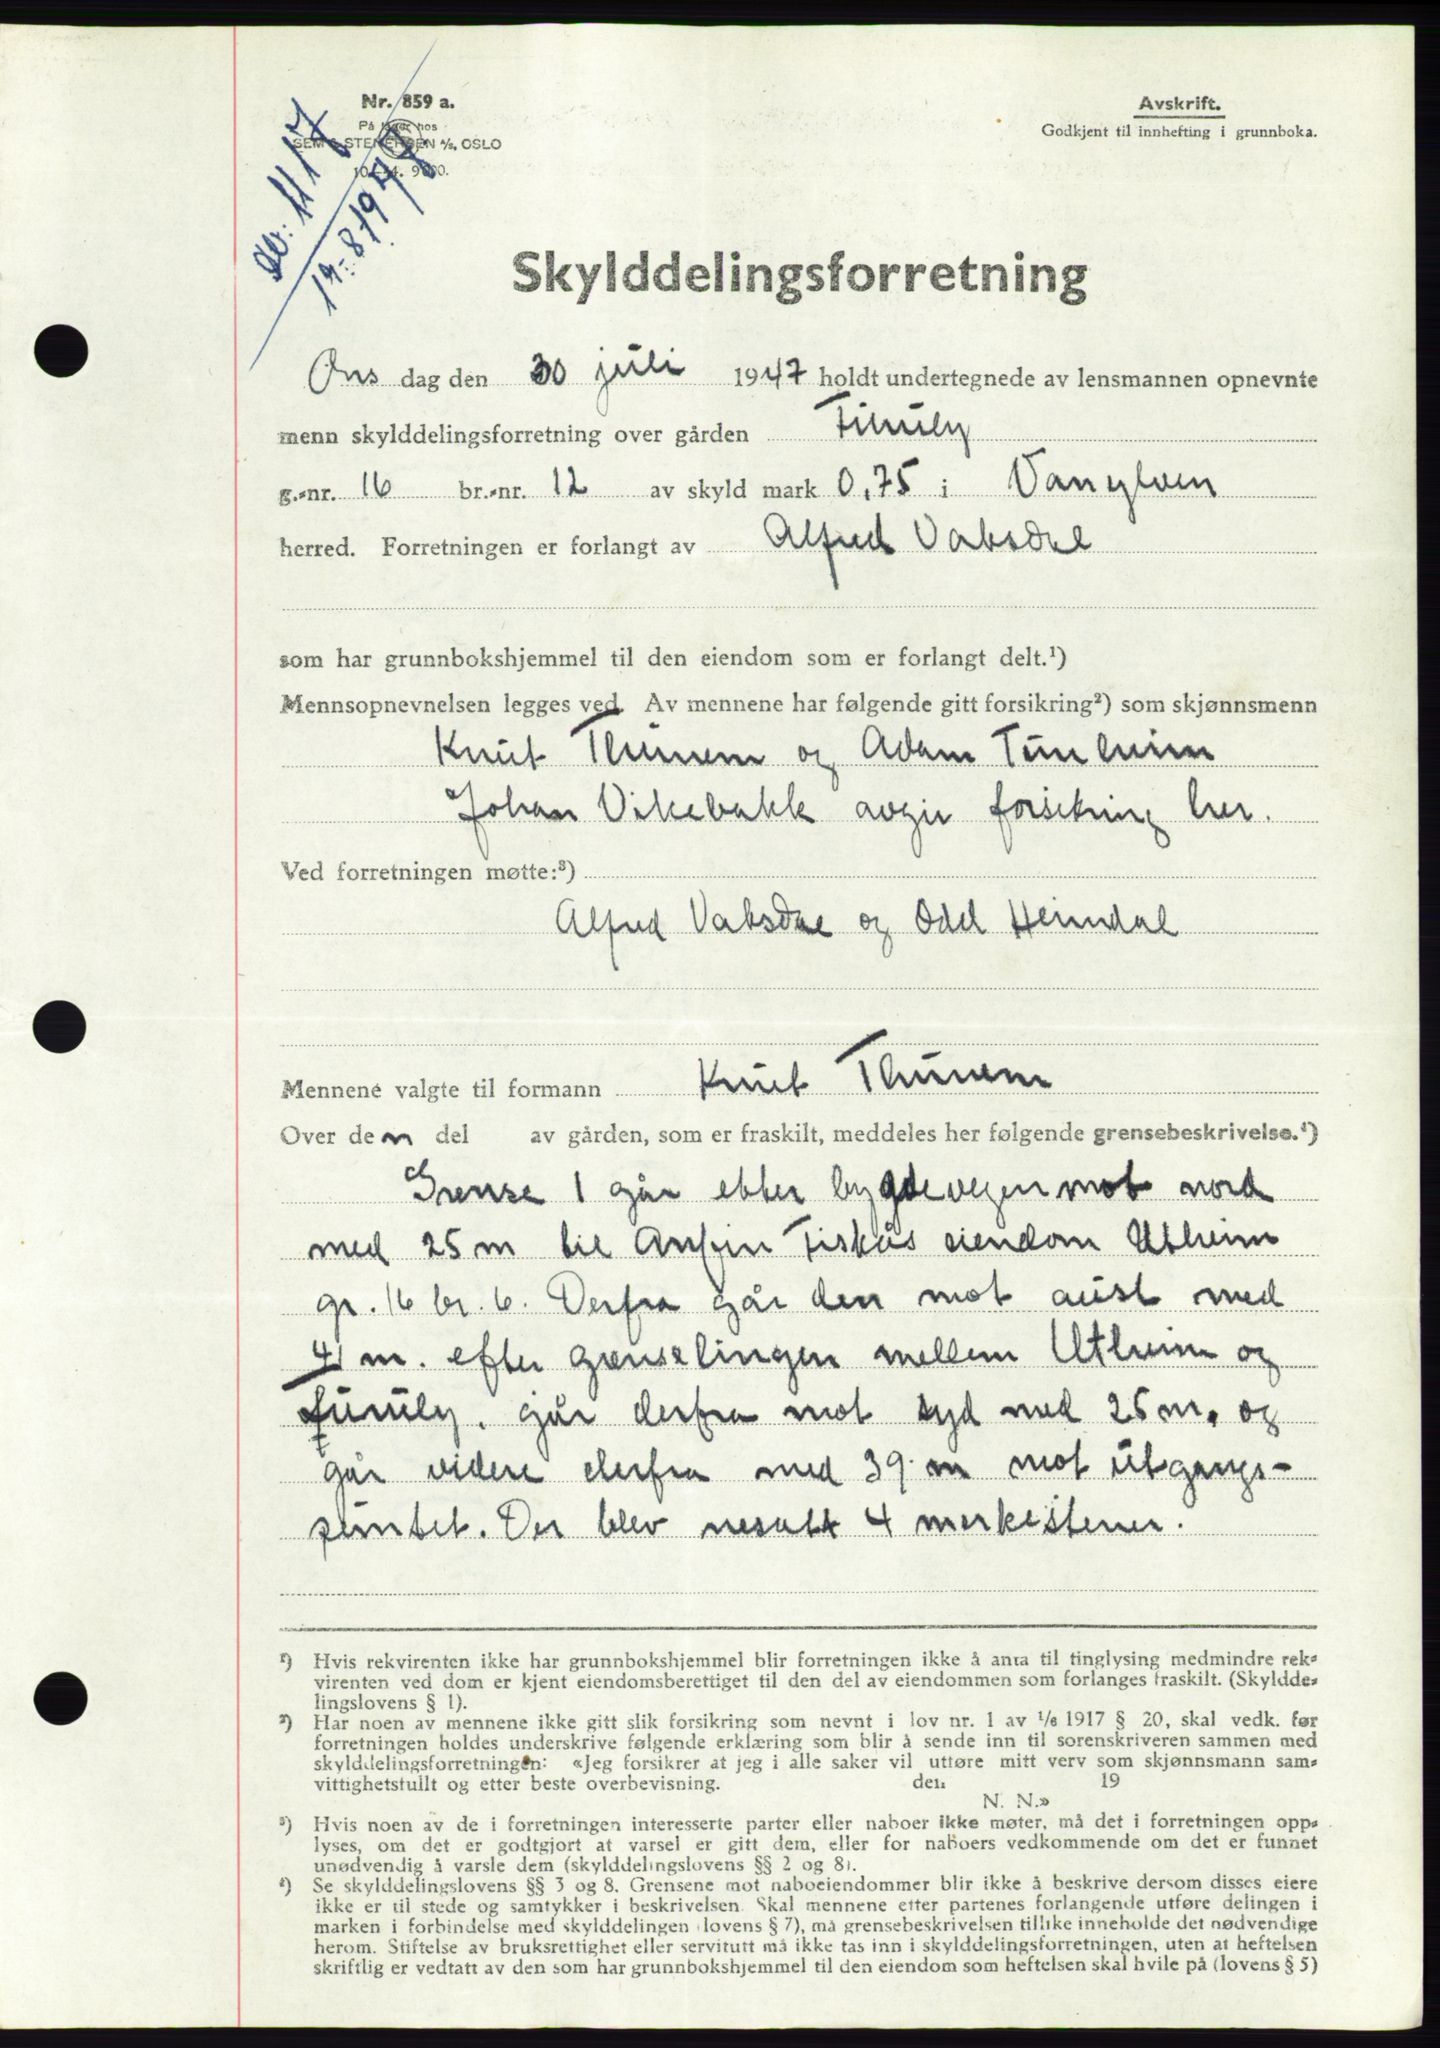 Nr. 859 a.
På lager hos
SEM & STENERSEN A/S, OSLO
10-44. 9000.
Avskrift.
Godkjent til innhefting i grunnboka.
1117
14-8-1947
Skylddelingsforretning
Ons dag den 30 juli 1947 holdt undertegnede av lensmannen opnevnte
menn skylddelingsforretning over gården
g.-nr. 16 br.-nr. 12 av skyld mark 0,75 i Vanylven
herred. Forretningen er forlangt av Alfred Vabsdal
som har grunnbokshjemmel til den eiendom som er forlangt delt.¹)
Mennsopnevnelsen legges ved. Av mennene har følgende gitt forsikring²) som skjønnsmenn
Knut Thunem og Adam Tunheim
Johan Vikebakk avgir forsikring her.
Ved forretningen møtte:³)
Alfred Vabsdal og Odd Heimdal
Mennene valgte til formann Knut Thunem
Over den del av gården, som er fraskilt, meddeles her følgende grensebeskrivelse.⁴)
Grense 1 går etter bygdevegen mot nord
med 25 m til Anfin Fiskås eiendom Utheim
gr. 16 br. 6. Derfra går den mot aust med
41 m. efter grenselingen mellem Utheim og
Furuly, går derfra mot syd med 25 m. og
går videre derfra med 39 m mot utgangs-
puntet. Der blev nesatt 4 merkestener.
¹) Hvis rekvirenten ikke har grunnbokshjemmel blir forretningen ikke å anta til tinglysing medmindre rek-
virenten ved dom er kjent eiendomsberettiget til den del av eiendommen som forlanges fraskilt. (Skyldde-
lingslovens § 1).
²) Har noen av mennene ikke gitt slik forsikring som nevnt i lov nr. 1 av ¹/₆ 1917 § 20, skal vedk. før
forretningen holdes underskrive følgende erklæring som blir å sende inn til sorenskriveren sammen med
skylddelingsforretningen: «Jeg forsikrer at jeg i alle saker vil utføre mitt verv som skjønnsmann sam-
vittighetsfullt og etter beste overbevisning. den 19
N. N.»
³) Hvis noen av de i forretningen interesserte parter eller naboer ikke møter, må det i forretningen opp-
lyses, om det er godtgjort at varsel er gitt dem, eller for naboers vedkommende om det er funnet
unødvendig å varsle dem (skylddelingslovens §§ 2 og 8).
⁴) Se skylddelingslovens §§ 3 og 8. Grensene mot naboeiendommer blir ikke å beskrive dersom disses eiere
ikke er til stede og samtykker i beskrivelsen. Skal mennene etter partenes forlangende utføre delingen i
marken i forbindelse med skylddelingen (lovens § 7), må grensebeskrivelsen tillike inneholde det nødvendige
herom. Stiftelse av bruksrettighet eller servitutt må ikke tas inn i skylddelingsforretningen, uten at heftelsen
skriftlig er vedtatt av den som har grunnbokshjemmel til den eiendom som heftelsen skal hvile på (lovens § 5)